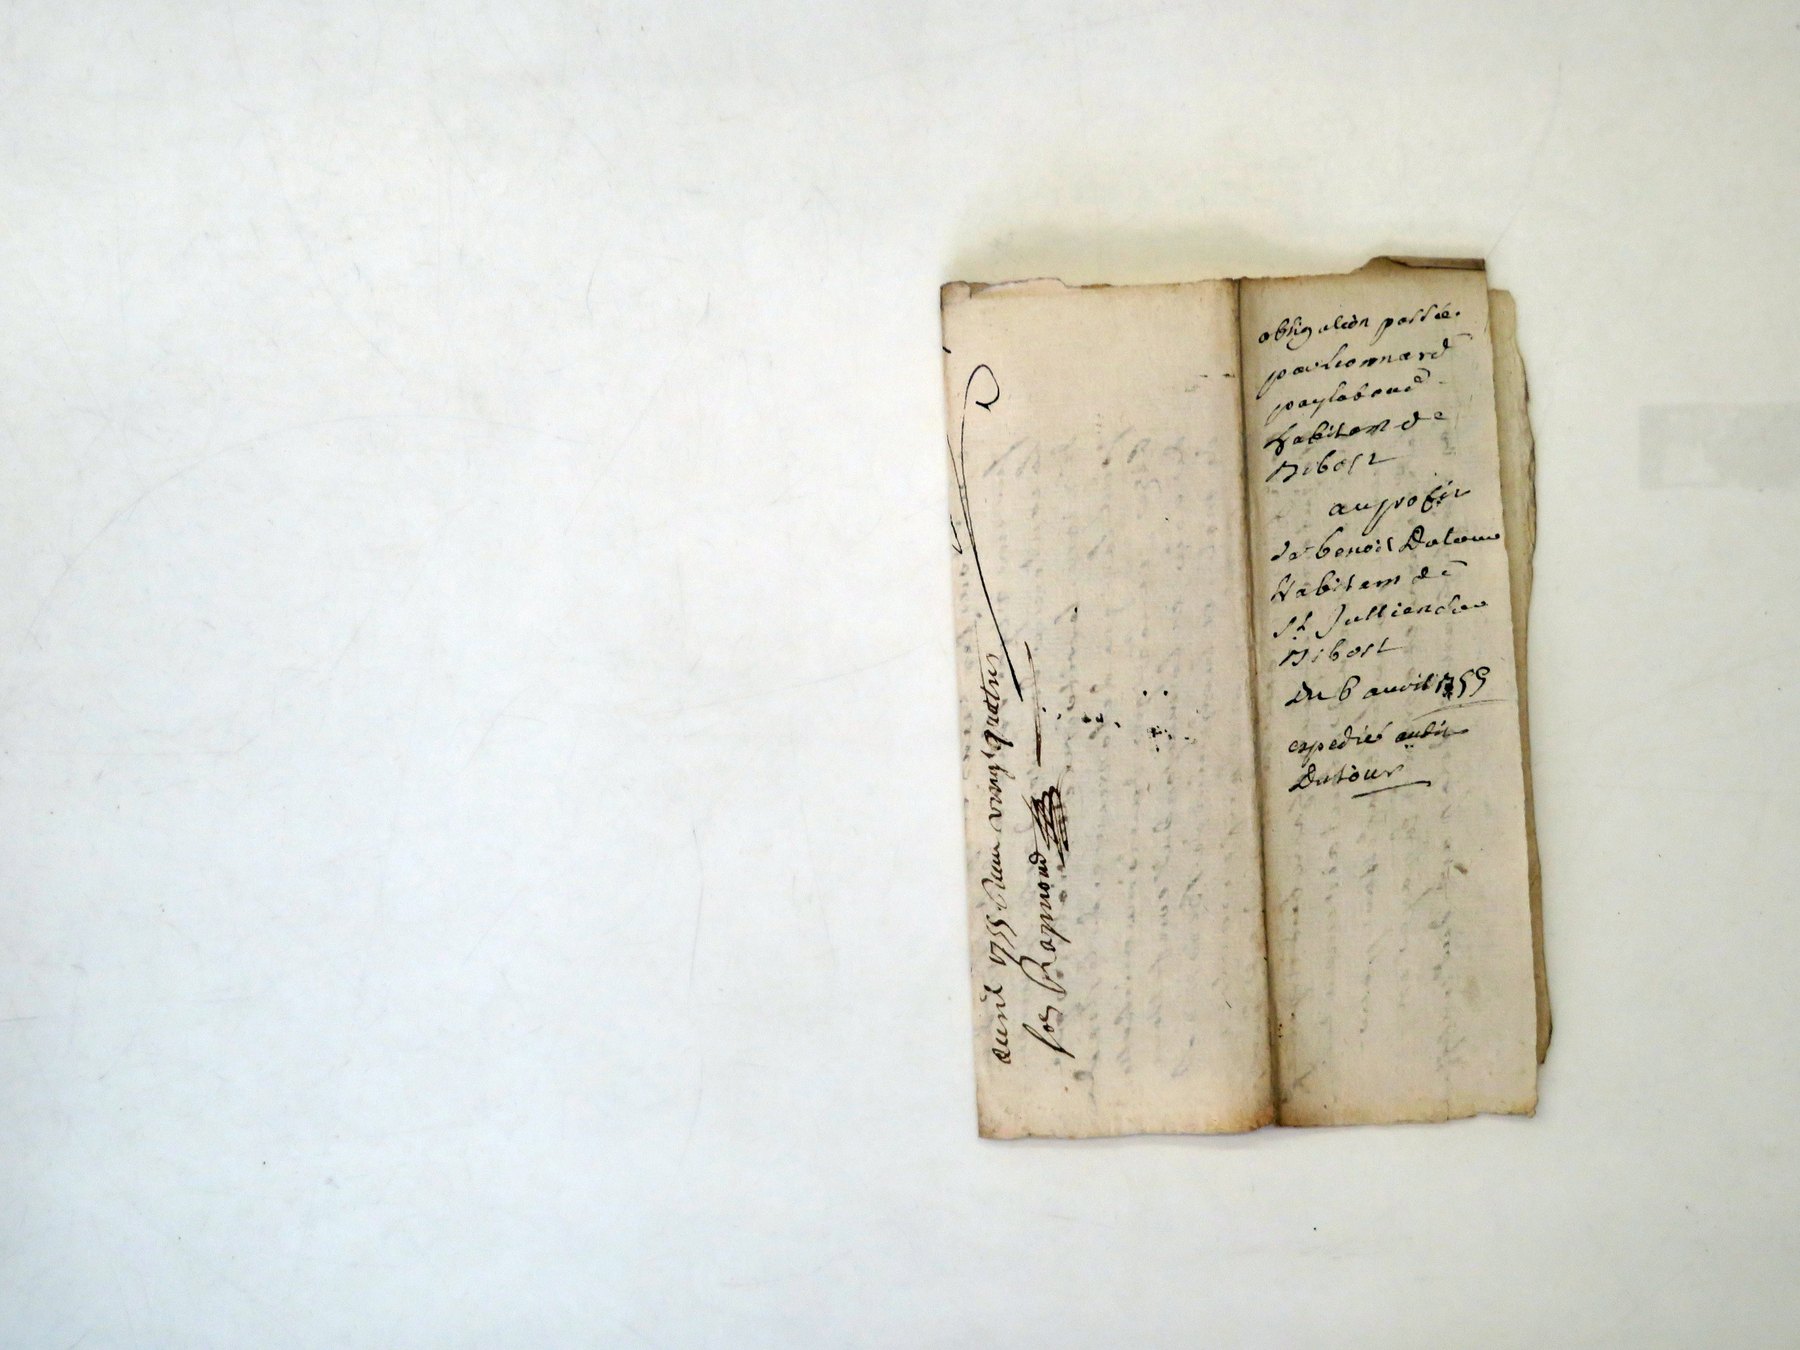 obligation passée
par leonnard
paylaboud
habitan de
Bibost
au profit
de benoit Dutour
habitam de
St Jullien de
Bibost
Du 6 avril 1755
expedié audit
Dutour
avril 1755 vingt quatre
Raymond